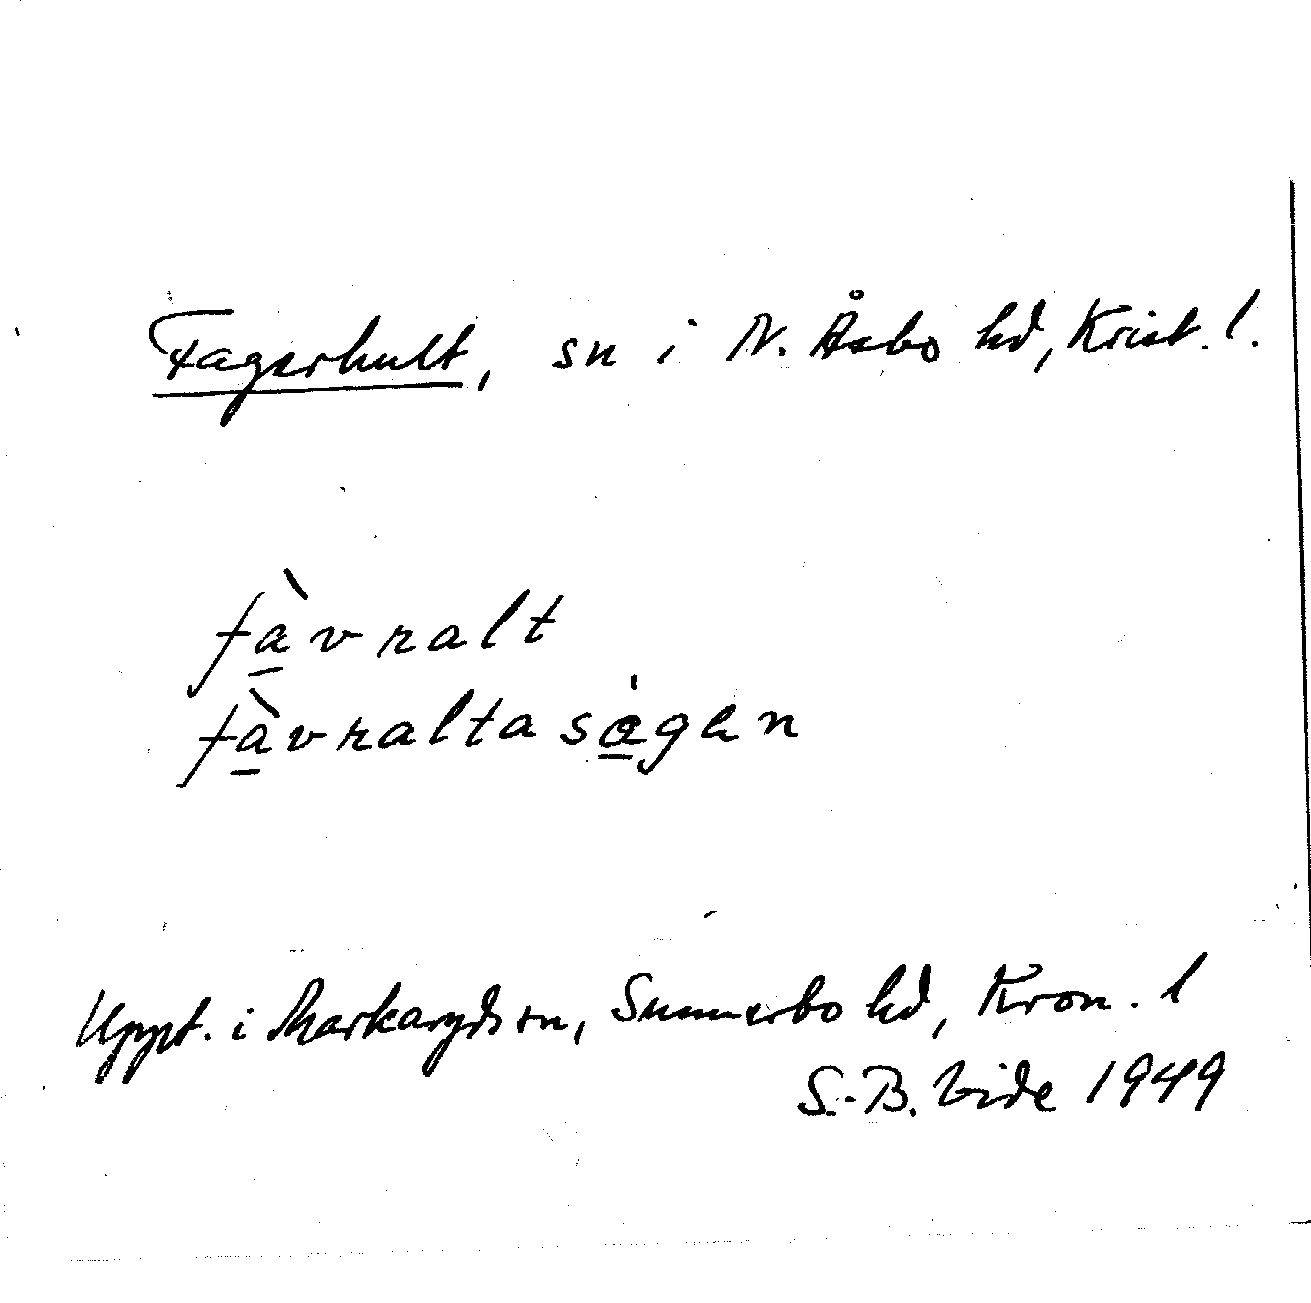 Fagerhult, sn i N. Åsbo hd, Krist. l.
fà̲vralt
fà̲vralta sa̲̍gen
Uppt. i Markaryds sn, Sunnerbo hd, Kron. l
S.-B. Vide 1949